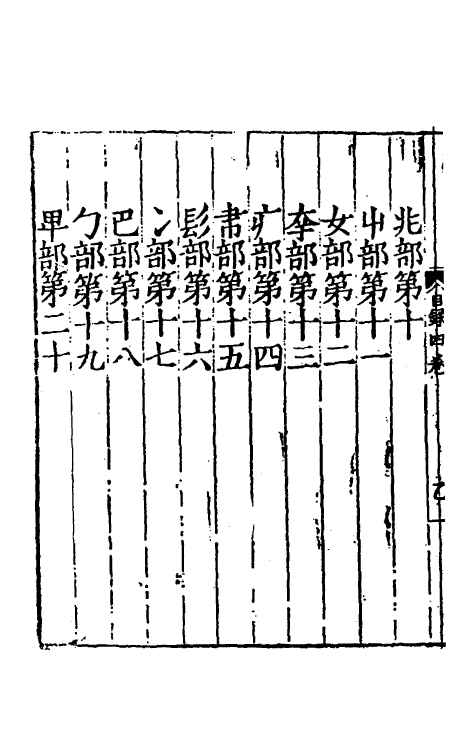 兆部第十
屮部第十一
女部第十二
㚔部第十三
疒部第十四
帇部第十五
髟部第十六
冫部第十七
巴部第十八
勹部第十九
卑部第二十
目録四卷